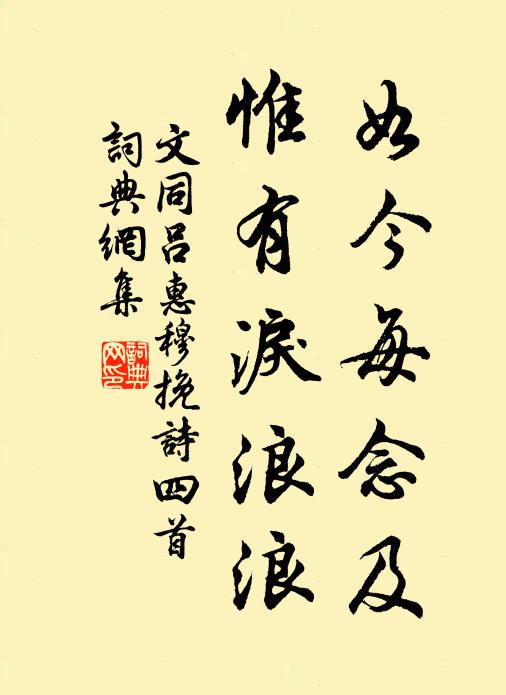 如今每念及
惟有淚浪浪
文同吕惠穆挽詩四首
詞典網集
詞典
网印